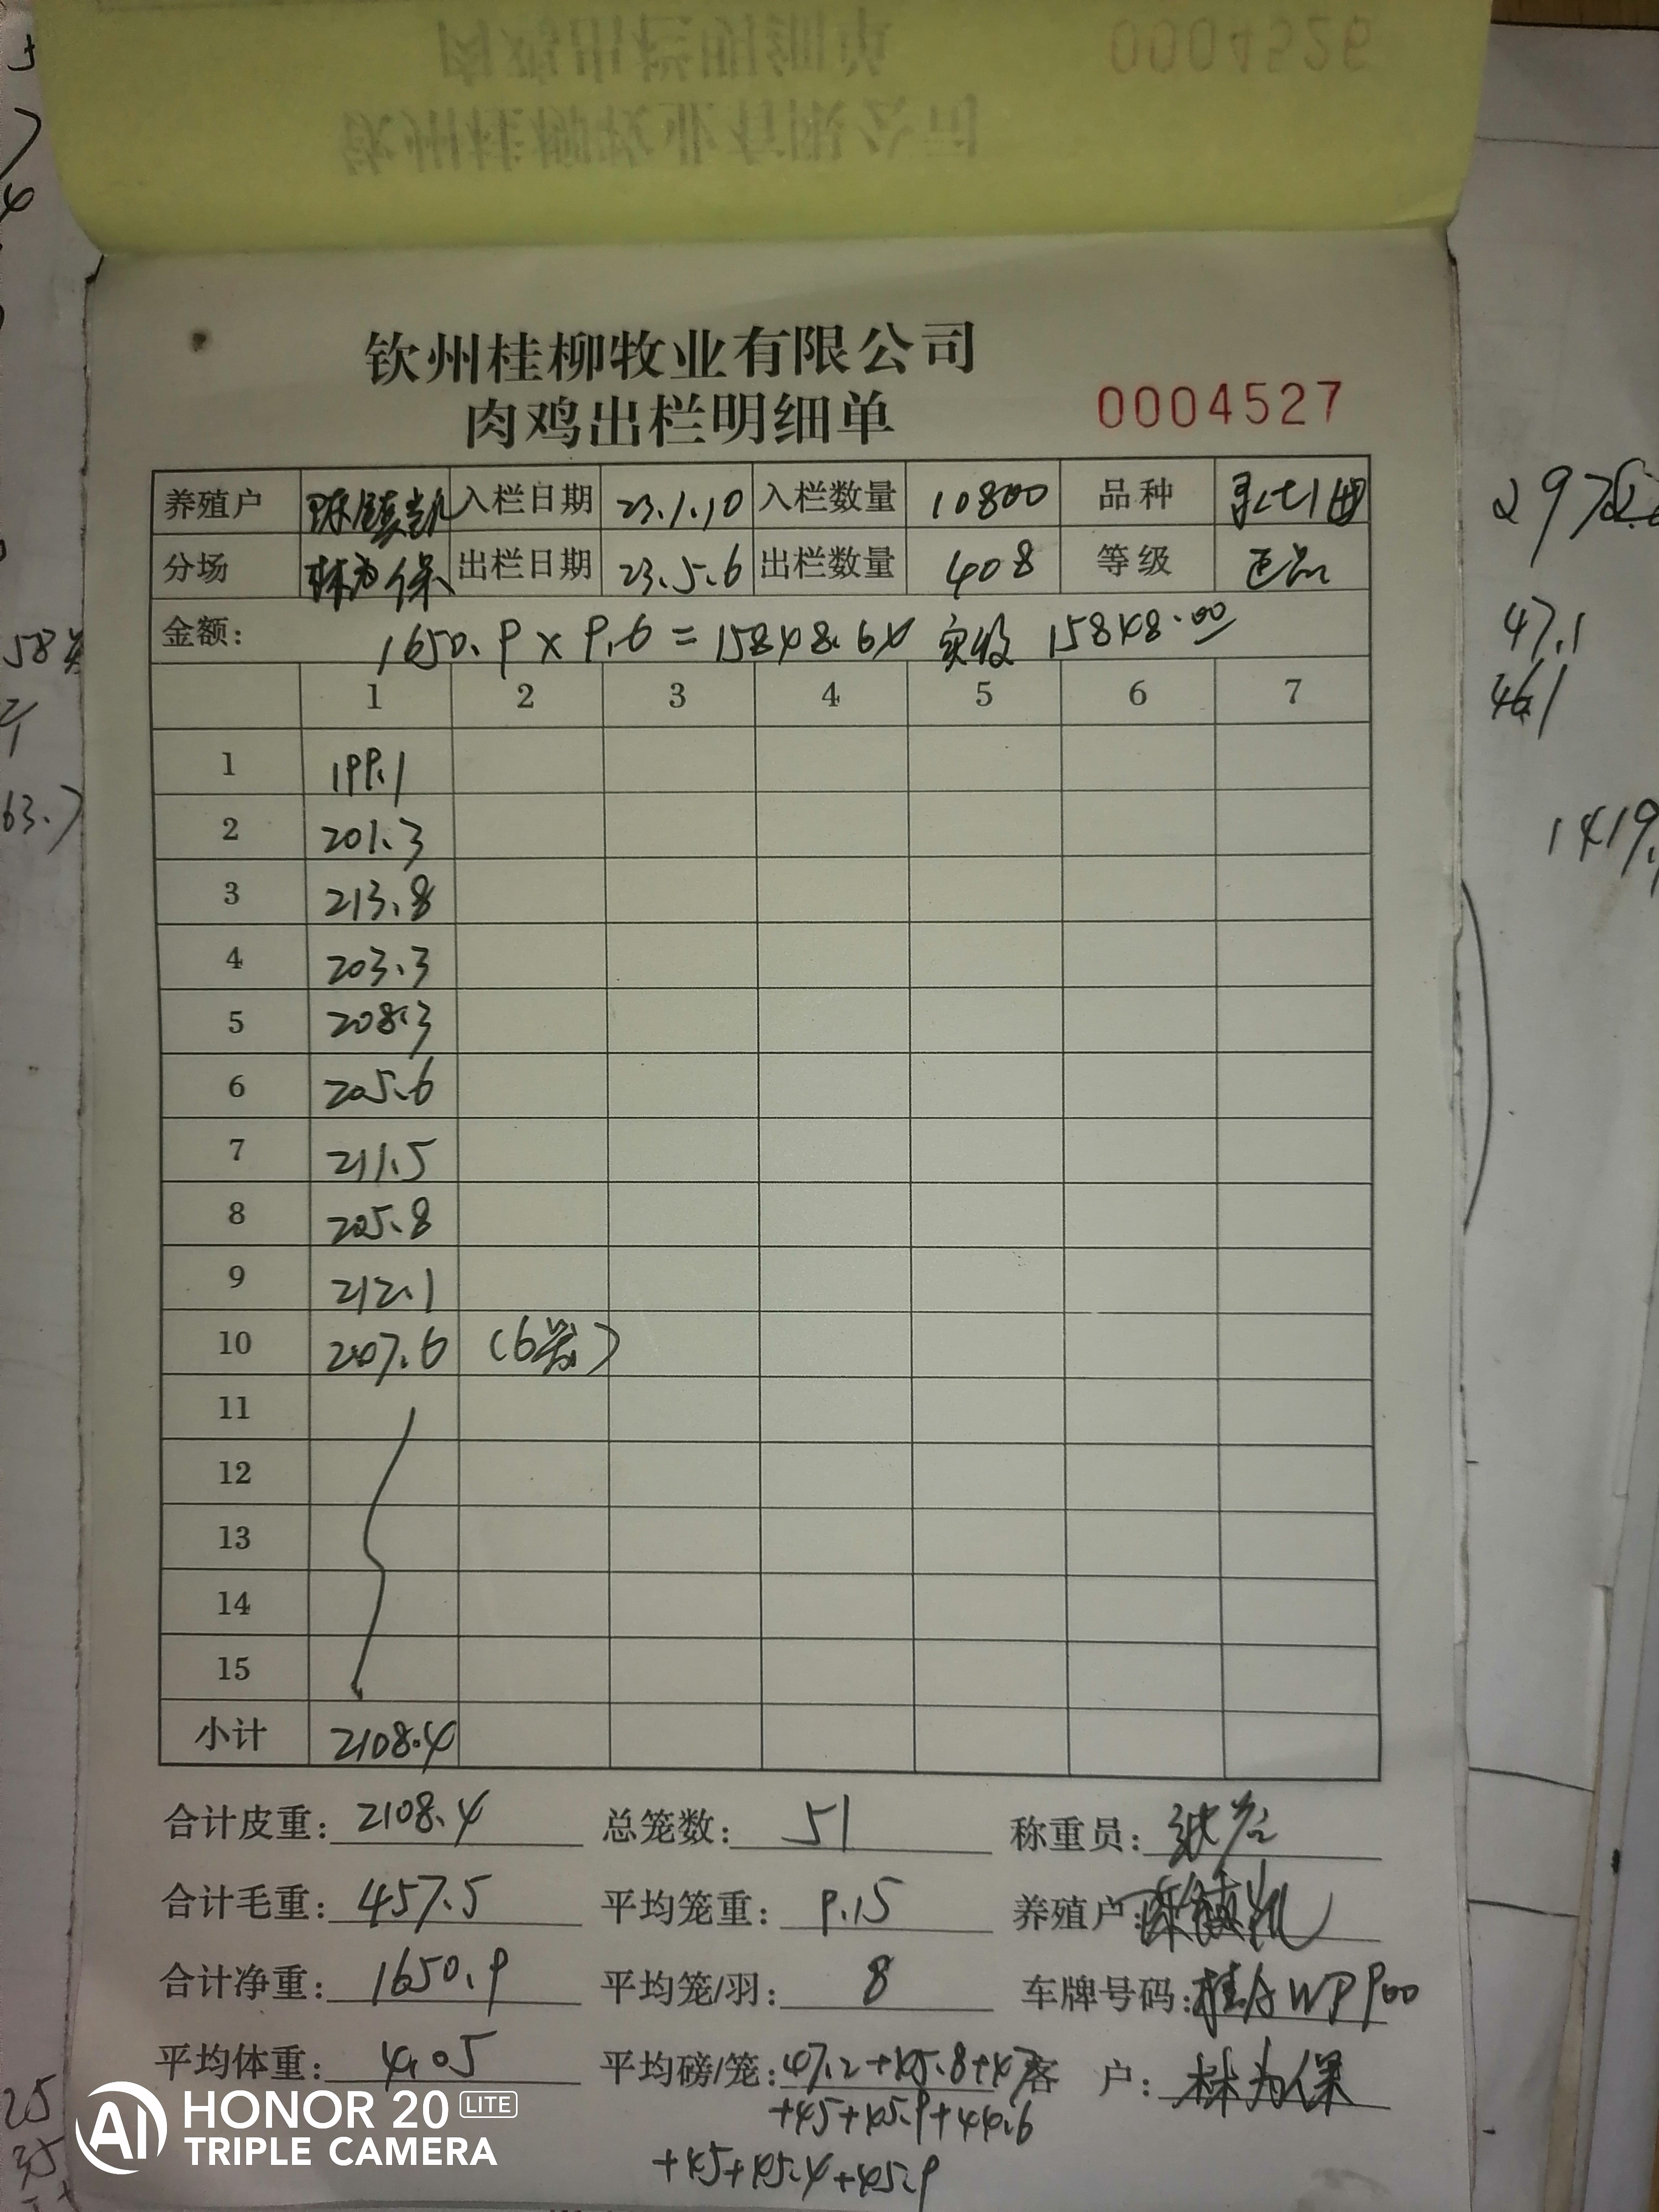 肉鸡出栏明细单 0004526
钦州桂柳牧业有限公司
钦州桂柳牧业有限公司
肉鸡出栏明细单 0004527
养殖户 陈镇凯 入栏日期 23.1.10 入栏数量 10800 品种
分场 林为保 出栏日期 23.5.6 出栏数量 408 等级 正品
金额: 1650.9 x 9.6 = 15848.64 实收 15848.00
1 2 3 4 5 6 7
1 199.1
2 201.3
3 213.8
4 203.3
5 208.3
6 205.6
7 211.5
8 205.8
9 212.1
10 207.6 (6笼)
11
12
13
14
15
小计 2108.4
合计皮重: 2108.4 总笼数: 51 称重员:
合计毛重: 457.5 平均笼重: 9.15 养殖户: 陈镇凯
合计净重: 1650.9 平均笼/羽: 8 车牌号码: 桂A WP900
平均体重: 4.05 平均磅/笼: 47.2+45.8+47 客 户: 林为保
+45+45.9+44.6
+45+45.4+45.9
47.1
46.1
1419.
63.7
25
35
HONOR 20 LITE
TRIPLE CAMERA